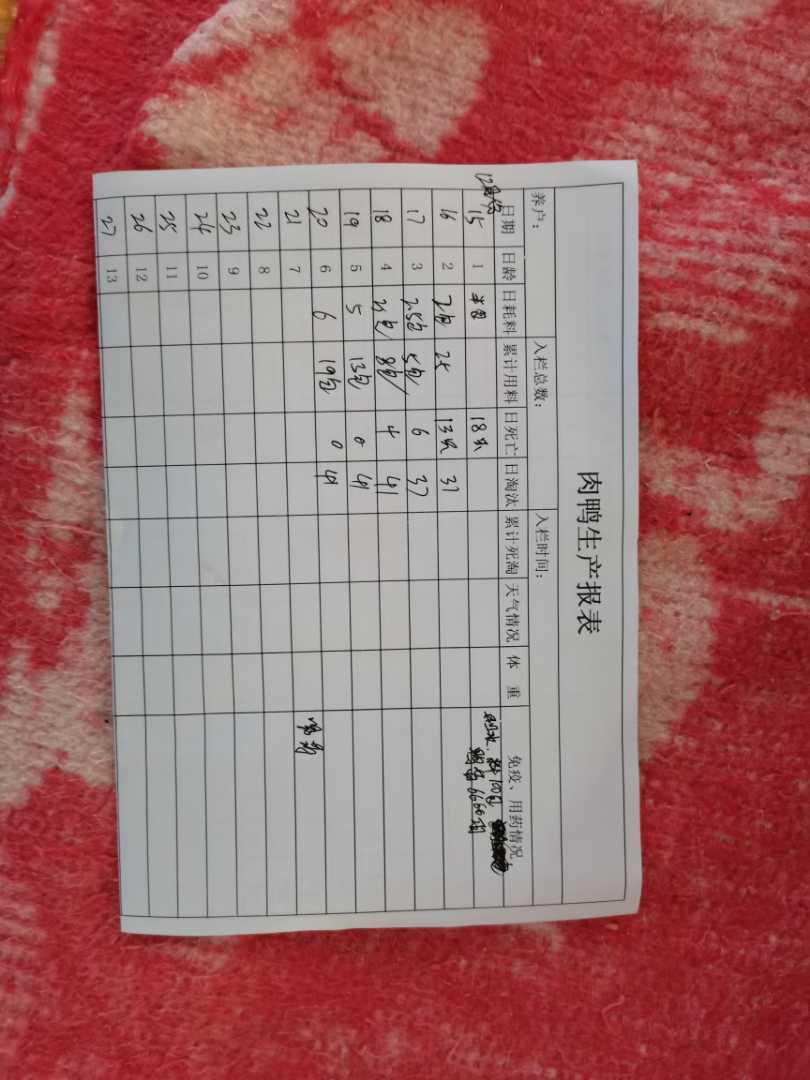 肉鸭生产报表
养户： 入栏总数： 入栏时间：
日期 日龄 日耗料 累计用料 日死亡 日淘汰 累计死淘 天气情况 体 重 免疫、用药情况
15 1 半包 18只 料100包
6660羽
16 2 2包 25 13只 31
17 3 2.5包 5包 6 37
18 4 8包 4 41
19 5 5 13包 0 41
20 6 6 19包 0 41
21 7
22 8
23 9
24 10
25 11
26 12
27 13